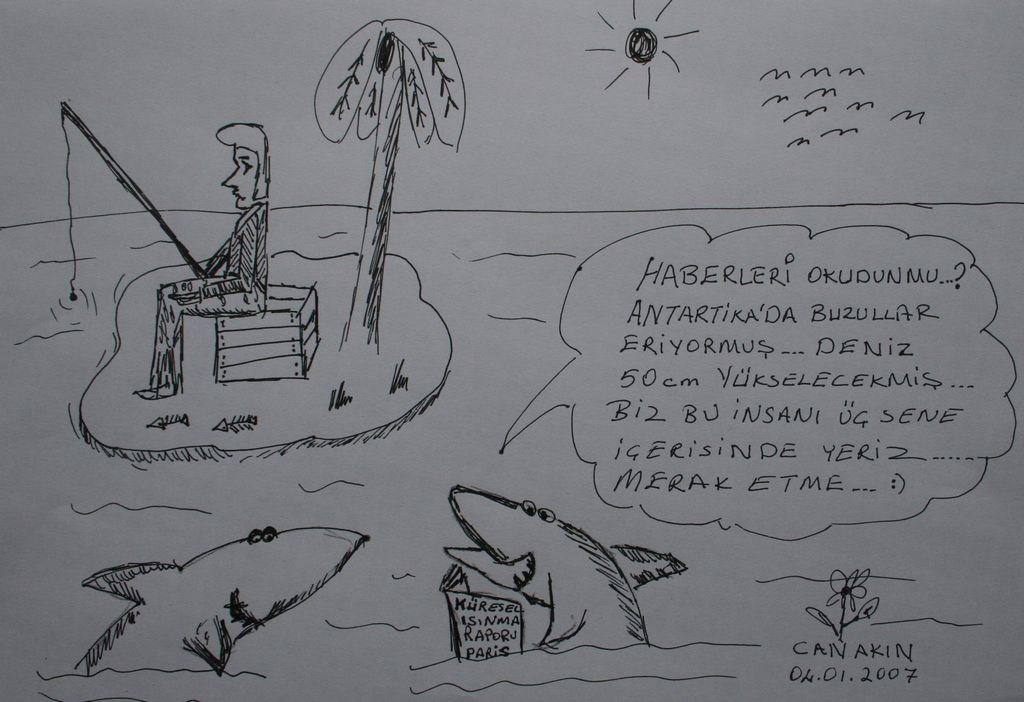 HABERLERİ OKUDUNMU...?
ANTARTİKA'DA BUZULLAR
ERİYORMUŞ... DENİZ
50cm YÜKSELECEKMİŞ...
BİZ BU İNSANI ÜÇ SENE
İÇERİSİNDE YERİZ......
MERAK ETME... :)
KÜRESEL
ISINMA
RAPORU
PARİS
CAN AKIN
04.01.2007